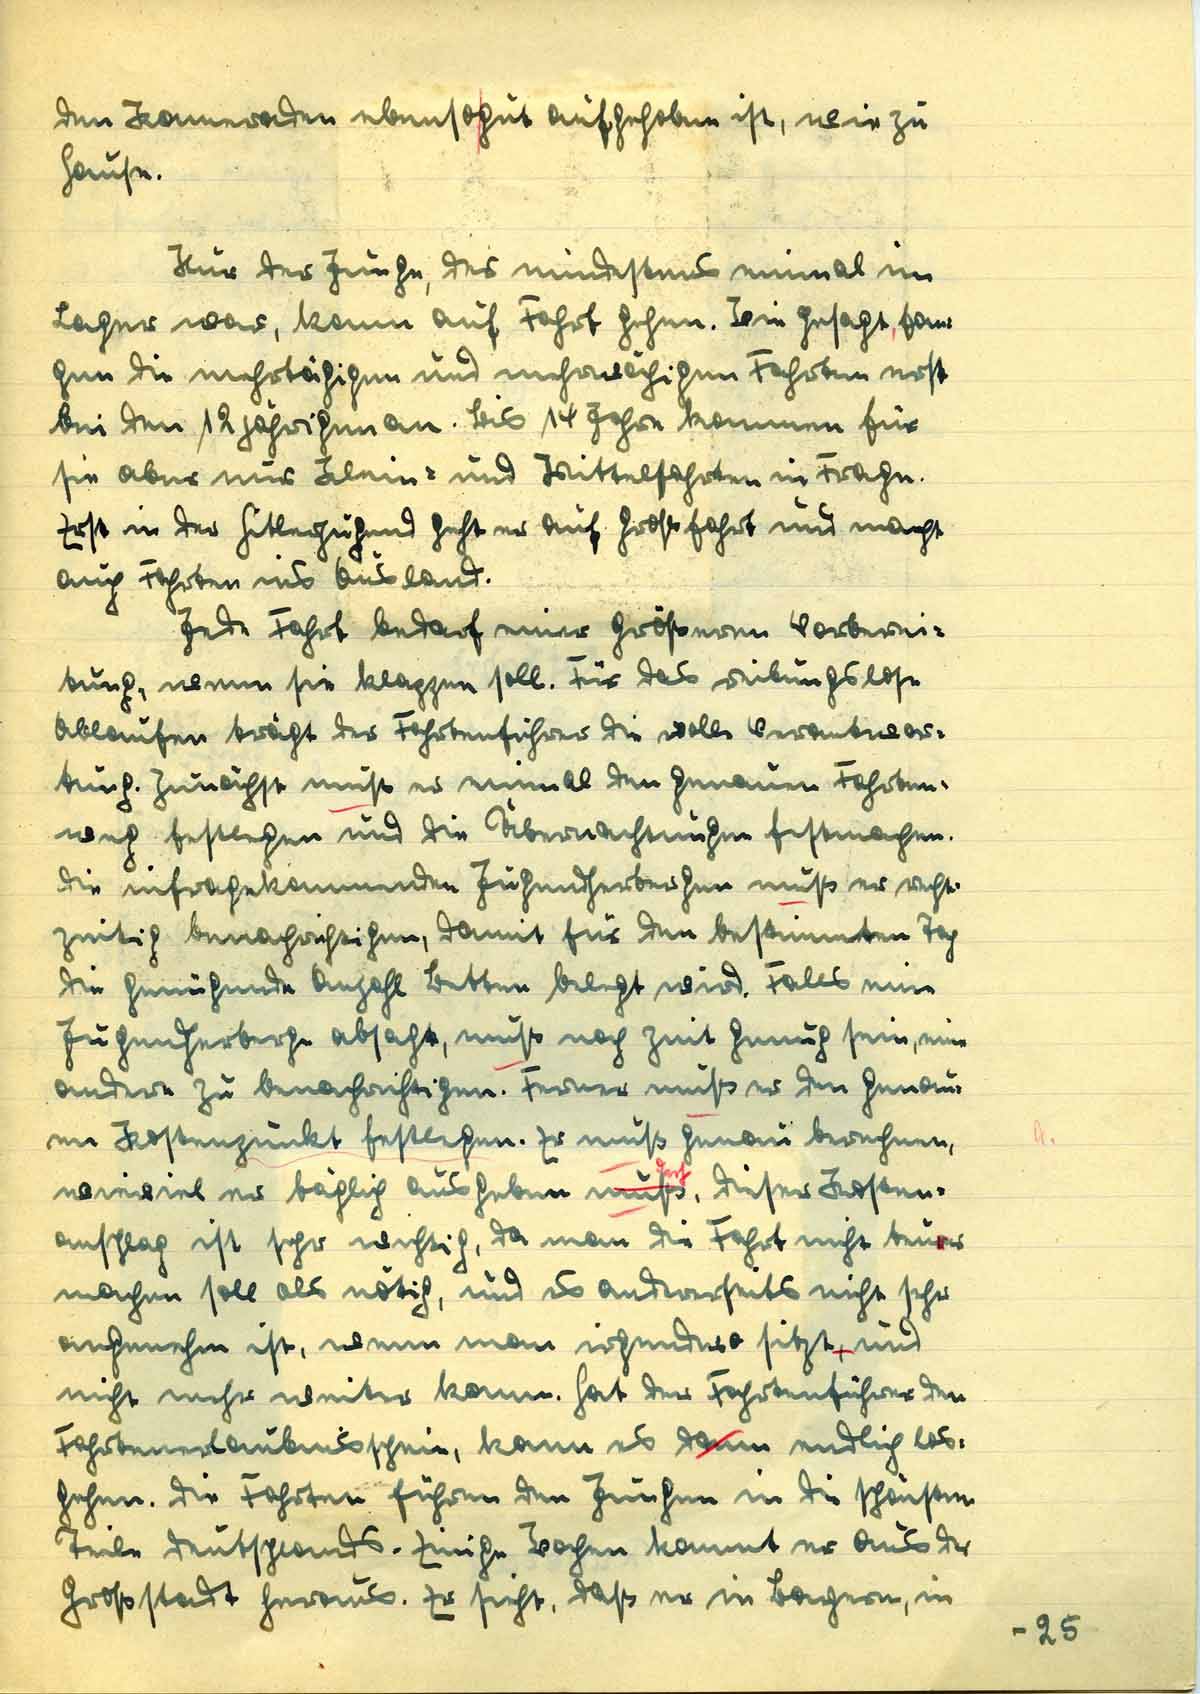 den Kameraden ebensogut aufgehoben ist, wie zu
Hause.
Nur der Junge, der mindestens einmal im
Lager war, kann auf Fahrt gehen. Wie gesagt, fan-
gen die mehrtägigen und mehrwöchigen Fahrten erst
bei den 12 jährigen an. Bis 14 Jahre kommen für
sie aber nur Klein- und Mittelfahrten in Frage.
Erst in der Hitlerjugend geht er auf Großfahrt und macht
auch Fahrten ins Ausland.
Jede Fahrt bedarf einer größeren Vorberei-
tung, wenn sie klappen soll. Für das reibungslose
Ablaufen trägt der Fahrtenführer die volle Verantwor-
tung. Zunächst muß er einmal den genauen Fahrten-
weg festlegen und die Übernachtungen festmachen.
Die infragekommenden Jugendherbergen muß er recht-
zeitig benachrichtigen, damit für den bestimmten Tag
die genügende Anzahl Betten belegt wird. Falls eine
Jugendherberge absagt, muß noch Zeit genug sein, eine
andere zu benachrichtigen. Ferner muß er den genau-
en Kostenpunkt festlegen. Er muß genau berechnen,
A.
wieviel er täglich ausgeben muß. darf Dieser Kosten-
anschlag ist sehr wichtig, da man die Fahrt nicht teurer
machen soll als nötig, und es andererseits nicht sehr
angenehm ist, wenn man irgendwo sitzt, und
nicht mehr weiter kann. Hat der Fahrtenführer den
Fahrtenerlaubnisschein, kann es dann endlich los-
gehen. Die Fahrten führen den Jungen in die schönsten
Teile Deutschlands. Einige Wochen kommt er aus der
Großstadt heraus. Er sieht, daß er in Bayern, in
-25